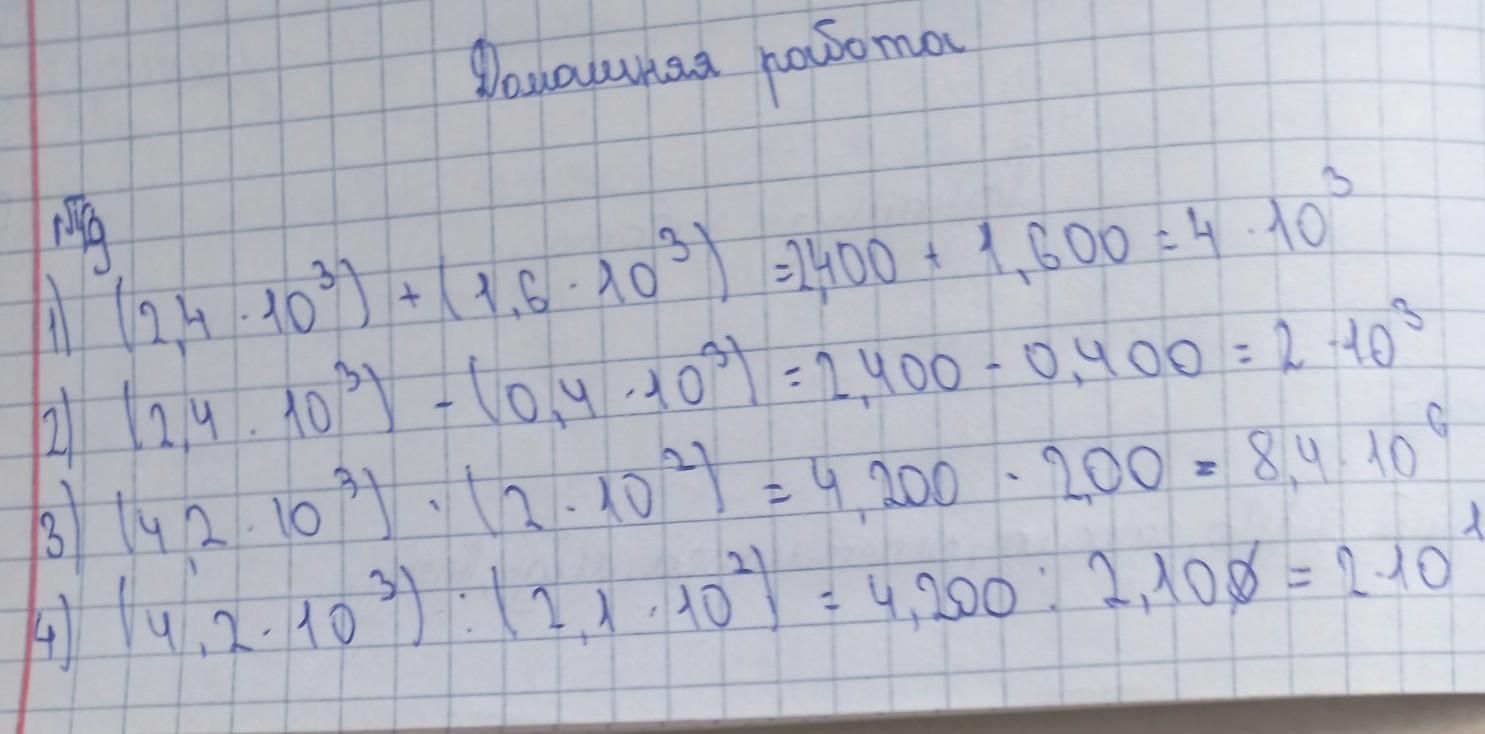 Домашняя работа
№9
1) (2,4 · 10³) + (1,6 · 10³) = 2,400 + 1,600 = 4 · 10³
2) (2,4 · 10³) - (0,4 · 10³) = 2,400 - 0,400 = 2 · 10³
3) (4,2 · 10³) · (2 · 10²) = 4,200 · 2,00 = 8,4 · 10⁶
4) (4,2 · 10³) : (2,1 · 10²) = 4,200 : 2,100 = 2 · 10¹